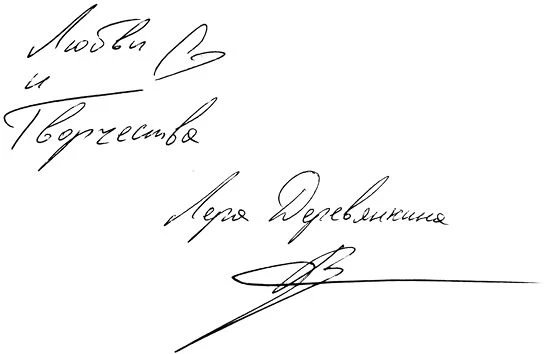 Любви
и
Творчества
Лера Деревянкина